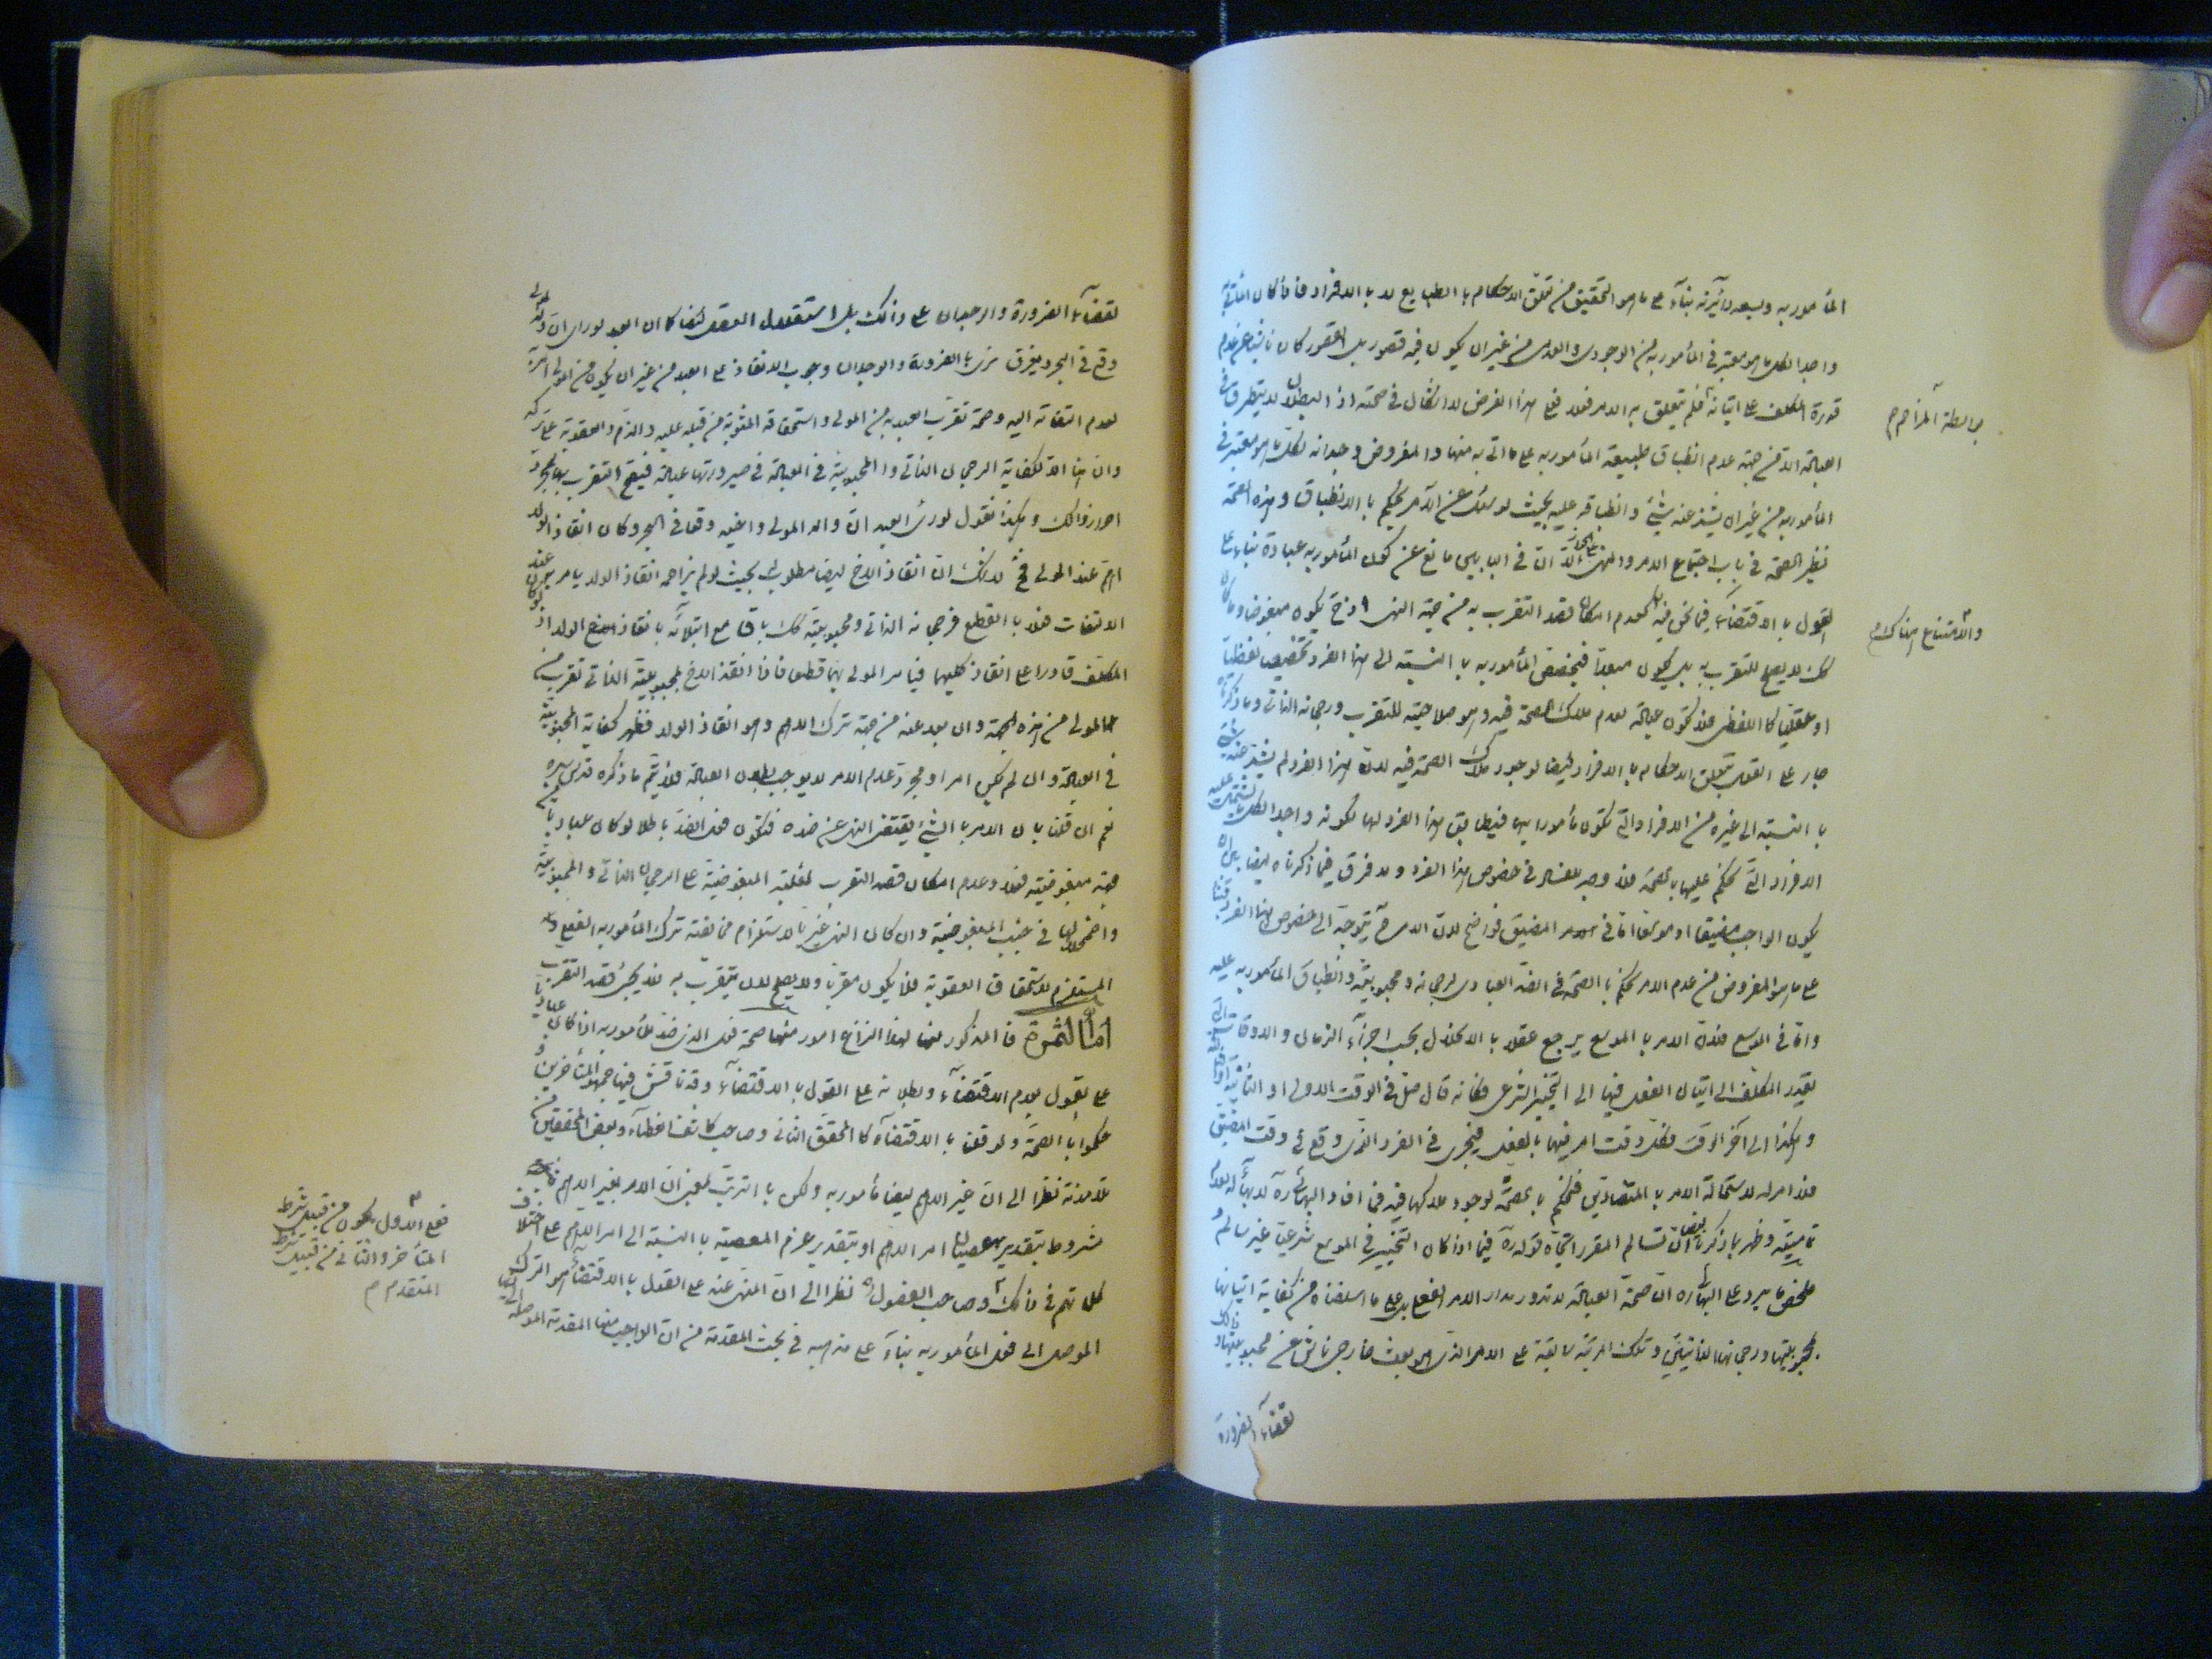 المأمور به وبعد تأثيره بناء على ما هو التحقيق من تعلق الاحكام بالطبايع لا بالافراد فاذا كان المأتي به
واجدا لكل ما هو معتبر في المأمور به من الوجودى والعدمى من غير ان يكون فيه قصور بل القصور كان ناشئا من عدم
قدرة المكلف على اتيانه فلم يتعلق به الامر فعلا فعلى هذا الفرض لا اشكال في صحته اذ البطلان لا يتطرق في
بواسطة المزاحم م
العبادة الا من جهة عدم انطباق طبيعة المأمور به على ما اتى به منها والمفروض وجدانه لكل ما هو معتبر في
المأمور به من غير ان يشذ عنه شئ وانطباقه عليه بحيث لو سئل عن الآمر يحكم بالانطباق وهذه الصحة
نظير الصحة في باب اجتماع الامر والنهى الا ان في البابين مانع عن كون المأمور به عبادة بناء على
القول بالاقتضاء فيما نحن فيه لعدم امكان قصد التقرب به من جهة النهى اذ ح يكون مبغوضا وما كان
والامتناع هناك م
كك لا يصلح للتقرب به بل يكون مبعدا فيخصص المأمور به بالنسبة الى هذا الفرد تخصيصا لفظيا
او عقليا كاللفظى فلا تكون عبادة لعدم ملاك الصحة فيه وهو صلاحيته للتقرب ورجحانه الذاتى وما ذكرناه
جار على القول بتعلق الاحكام بالافراد ايضا لوجود ملاك الصحة فيه لان هذا الفرد لم يشذ عنه شئ
بالنسبة الى غيره من الافراد التى تكون مأمورا بها فيطابق هذا الفرد لها لكونه واجدا لكل ما يشتمل عليه
الافراد التى يحكم عليها بالصحة فلا وجه للفساد في خصوص هذا الفرد ولا فرق فيما ذكرناه ايضا بين ان
يكون الواجب مضيقا او موسعا اما في المضيق فواضح لان الامر ح يتوجه الى خصوص هذا الفرد
على ما هو المفروض من عدم الامر يحكم بالصحة في الضد العبادى لرجحانه ومحبوبيته وانطباق المأمور به عليه
واما في الموسع فلان الامر بالموسع يرجع عقلا بالانحلال بحسب اجزاء الزمان والاوقات التى
يقدر المكلف الى اتيان الفعل فيها الى التخيير الشرعى فكانه قال صل في الوقت الاول او الثانى
وهكذا الى آخر الوقت فكل وقت امر فيها بالفعل فيجرى في الفرد الذى وقع في وقت المضيق
فلا امر له لاستحالة الامر بالمتضادين فيحكم بالصحة لوجود ملاكها فيه فما افاد البهائى ره لا بهاء له لعدم
تماميته وظهر بما ذكرنا ايضا ان تسالم المقرر اتجاه قوله ره فيما اذا كان التخيير في الموسع شرعيا غير سالم
ملخص ما يرد على البهائى ره ان صحة العبادة لا تدور مدار الامر الفعلى بل على ما اسلفناه من كفاية اتيانها
بمحبوبيتها ورجحانها الذاتيتين وتلك المرتبة سابقة على الامر الذى هو بعث خارجى ناش عن محبوبيتها وذلك
لقضاء الضرورة
لقضاء الضرورة والوجدان على ذلك بل استقلال العقل كذلك كما ان العبد لو راى ان ولد المولى
وقع في البحر ويغرق نرى بالضرورة والوجدان وجوب الانقاذ على العبد من غير ان يكون من المولى امر
لعدم التفاته اليه وصحة تقرب العبد به من المولى واستحقاقه المثوبة من قبله عليه والذم والعقوبة على تركه
وان هذا الا لكفاية الرجحان الذاتى والمحبوبية في العبادة في صيرورتها عبادة فيصح التقرب بها بمجرد
احراز ذلك وهكذا نقول لو رأى العبد ان ولد المولى واخيه وقعا في البحر وكان انقاذ الولد
اهم عند المولى فح لا شك ان انقاذ الاخ ايضا مطلوب بحيث لو لم يزاحمه انقاذ الولد يامر به المولى عند
الالتفات فعلا بالقطع فرجحانه الذاتى ومحبوبيته كك باق مع ابتلائه بانقاذ الولد اذ لو كان
المكلف قادرا على انقاذ كليهما فيأمر المولى بهما قطعا فاذا انقذ الاخ لمحبوبيته الذاتى تقرب من
المولى من هذه الجهة وان بعد عنه من جهة ترك الاهم وهو انقاذ الولد فظهر كفاية المحبوبية
في العبادة وان لم يكن امر ومجرد عدم الامر لا يوجب بطلان العبادة فلا يتم ما ذكره قدس سره
نعم ان قلنا بان الامر بالشئ يقتضى النهى عن ضده فتكون فعل الضد باطلا لو كان عباديا
جهة مبغوضيته فعلا وعدم امكان قصد التقرب لغلبة المبغوضية على الرجحان الذاتى والمحبوبية
واضمحلالها في جنب المبغوضية وان كان النهى غيريا لاستلزام مخالفته ترك المأمور به الفعلى
المستلزم لاستحقاق العقوبة فلا يكون مقربا ولا يصلح لان يتقرب به فلا يجئ قصد التقرب
اما الثمرة فالمذكور لهذا النزاع امور منها صحة فعل الذى ضد للمأمور به اذا كان عباديا
على القول بعدم الاقتضاء وبطلانه على القول بالاقتضاء وقد ناقش فيها جمهور المتأخرين و
حكموا بالصحة ولو قلنا بالاقتضاء كالمحقق الثانى وصاحب كاشف الغطاء وبعض المحققين من
تلامذته نظرا الى ان غير الاهم ايضا مأمور به ولكن بالترتب بمعنى ان الامر بغير الاهم
مشروط بتقدير عصيان امر الاهم او بتقدير عزم المعصية بالنسبة الى امر الاهم على اختلاف
فعلى الاول يكون من قبيل شرط
المتأخر والثانى من قبيل شرط
المتقدم م
كلماتهم في ذلك وصاحب الفصول ره نظرا الى ان المنهى عنه على القول بالاقتضاء هو الترك
الموصل الى فعل المأمور به بناء على مذهبه في بحث المقدمة من ان الواجب منها المقدمة الموصلة